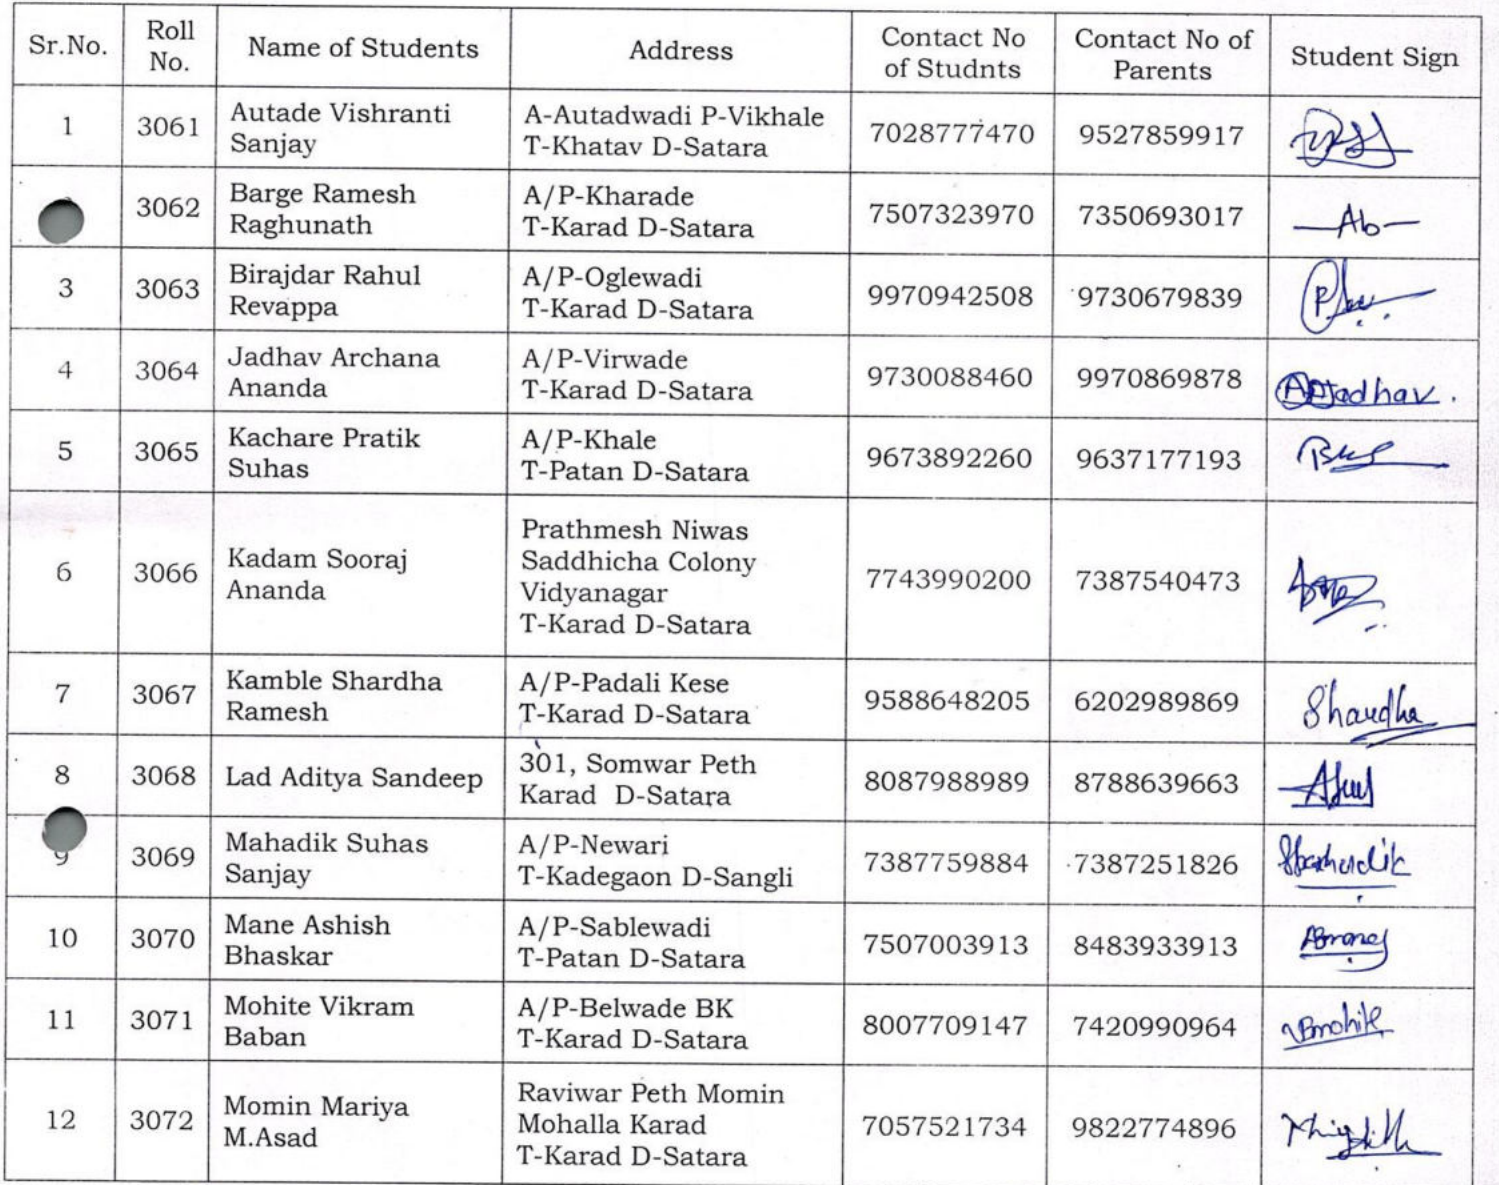 Sr.No. Roll No. Name of Students Address Contact No of Studnts Contact No of Parents Student Sign
1 3061 Autade Vishranti Sanjay A-Autadwadi P-Vikhale T-Khatav D-Satara 7028777470 9527859917
3062 Barge Ramesh Raghunath A/P-Kharade T-Karad D-Satara 7507323970 7350693017 —Ab—
3 3063 Birajdar Rahul Revappa A/P-Oglewadi T-Karad D-Satara 9970942508 9730679839
4 3064 Jadhav Archana Ananda A/P-Virwade T-Karad D-Satara 9730088460 9970869878
5 3065 Kachare Pratik Suhas A/P-Khale T-Patan D-Satara 9673892260 9637177193
6 3066 Kadam Sooraj Ananda Prathmesh Niwas Saddhicha Colony Vidyanagar T-Karad D-Satara 7743990200 7387540473
7 3067 Kamble Shardha Ramesh A/P-Padali Kese T-Karad D-Satara 9588648205 6202989869 Shardha
8 3068 Lad Aditya Sandeep 301, Somwar Peth Karad D-Satara 8087988989 8788639663
9 3069 Mahadik Suhas Sanjay A/P-Newari T-Kadegaon D-Sangli 7387759884 7387251826
10 3070 Mane Ashish Bhaskar A/P-Sablewadi T-Patan D-Satara 7507003913 8483933913
11 3071 Mohite Vikram Baban A/P-Belwade BK T-Karad D-Satara 8007709147 7420990964
12 3072 Momin Mariya M.Asad Raviwar Peth Momin Mohalla Karad T-Karad D-Satara 7057521734 9822774896